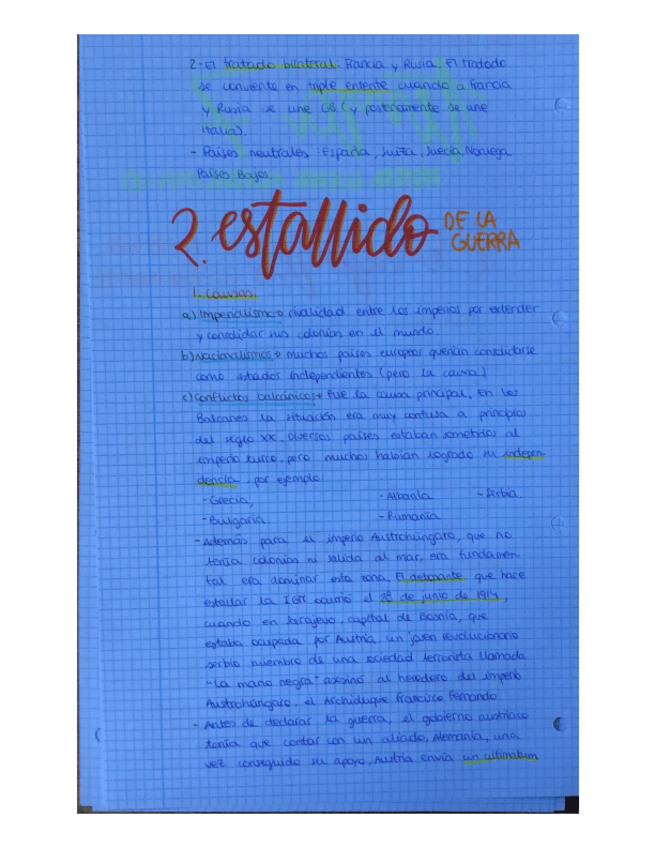 2-El tratado bilateral: Francia y Rusia. El tratado
se convierte en triple entente cuando a Francia
y Rusia se une GB (y posteriormente se une
Italia).
- Países neutrales: España, Suiza, Suecia, Noruega,
Países Bajos.
2. estallido DE LA GUERRA
1. Causas.
a) Imperialismo → rivalidad entre los imperios por extender
y consolidar sus colonias en el mundo.
b) Nacionalismos → muchos países europeos querían consolidarse
como estados independientes (pero la causa)
c) Conflictos balcánicos → fue la causa principal. En los
Balcanes la situación era muy confusa a principios
del siglo XX. Diversos países estaban sometidos al
imperio turco, pero muchos habían logrado su indepen-
dencia, por ejemplo:
- Grecia, - Albania - Serbia.
- Bulgaria. - Rumanía
- Además para el imperio Austrohúngaro, que no
tenía colonias ni salida al mar, era fundamen-
tal era dominar esta zona. El detonante que hace
estallar la IGM ocurrió el 28 de junio de 1914,
cuando en Sarajevo, capital de Bosnia, que
estaba ocupada por Austria, un joven revolucionario
serbio miembro de una sociedad terrorista llamada
"La mano negra" asesinó al heredero del imperio
Austrohúngaro, el Archiduque Francisco Fernando.
- Antes de declarar la guerra, el gobierno austríaco
tenía que contar con un aliado, Alemania, una
vez conseguido su apoyo, Austria envía un ultimatum